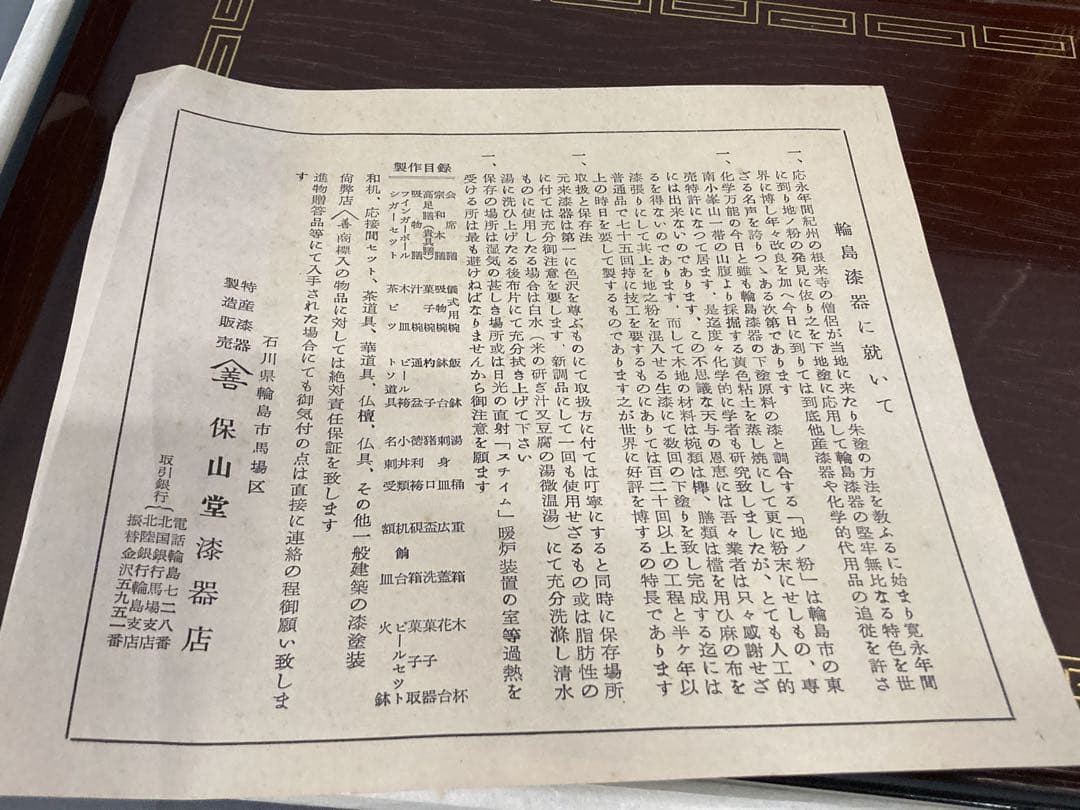 輪島漆器に就いて
一、応永年間紀州の根来寺の僧侶が当地に来たり朱塗の方法を教ふるに始まり寛永年間
に到り地ノ粉の発見に依り之を下地塗に応用して輪島漆器の堅牢無比なる特色を世
界に博し年々改良を加へ今日に到りては到底他産漆器や化学的代用品の追従を許さ
ざる名声を誇りつゝある次第であります
一、化学万能の今日と雖も輪島漆器の下塗原料の漆と調合する「地ノ粉」は輪島市の東
南小峯山一帯の山腹より採掘する黄色粘土を蒸し焼にして更に粉末にせしもの、専
売特許になつて居ます、是迄度々化学的に学者も研究致しましたが、とても人工的
には出来ないのであります、この不思議な天与の恩恵には吾々業者は只々感謝せざ
るを得ないのであります、而して木地の材料は椀類は欅、膳類は檔を用ひ麻の布を
漆張りにして其上を地之粉を混入せる生漆にて数回の下塗りを致し完成する迄には
普通品で七十五回持に技工を要するものにありては百二十回以上の工程と半ケ年以
上の時日を要して製するものであります之が世界に好評を博するの特長であります
一、取扱と保存法
元来漆器は第一に色沢を尊ぶものにて取扱方に付ては叮寧にすると同時に保存場所
に付ては充分御注意を要します、新調品にして一回も使用せざるもの或は脂肪性の
ものに使用したる場合は白水（米の研ぎ汁又豆腐の湯微温湯）にて充分洗滌し清水
湯に洗ひ上げたる後布片にて充分拭き上げて下さい
一、保存の場所は湿気の甚しき場所或は日光の直射「スチイム」暖炉装置の室等過熱を
受ける所は最も避けねばなりませんから御注意を願ます
製作目録
会席膳 儀式用椀 飯鉢 湯桶 重箱 木杯
宗和本膳 吸物椀 鉢台 刺身皿 広蓋 花台
高足膳（貴具膳） 菓子椀 杓子 猪口 盃洗 菓子器
吸物膳 汁椀 通盆 徳利袴 硯箱 菓子取
フインガーボール 木皿 ビール袴 小丼類 机台 ビールセット
シガーセット 茶ビツ トソ道具 名刺受 額餝皿 火鉢
和机、応接間セット、茶道具、華道具、仏檀、仏具、その他一般建築の漆塗装
尚弊店〈善商標入の物品に対しては絶対責任保証を致します
進物贈答品等にて入手された場合にても御気付の点は直接に連絡の程御願い致しま
す
石川県輪島市馬場区
特産漆器
製造販売
〈善 保山堂漆器店
電話輪島七二八番
取引銀行 北国銀行馬場支店
北陸銀行輪島支店
振替金沢五九五一番